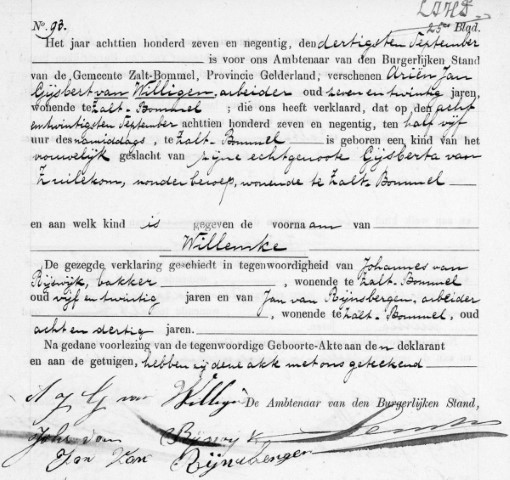 No. 93.
25ste Blad.
Het jaar achttien honderd zeven en negentig, den dertigsten September
is voor ons Ambtenaar van den Burgerlijken Stand
van de Gemeente Zalt-Bommel, Provincie Gelderland, verschenen Ariën Jan
Gijsbert van Willigen, arbeider oud zeven en twintig jaren,
wonende te Zalt-Bommel ; die ons heeft verklaard, dat op den acht
en twintigsten September achttien honderd zeven en negentig, ten half vijf
uur des namiddags, te Zalt-Bommel is geboren een kind van het
vrouwelijk geslacht van zijne echtgenoote Gijsberta van
Zuilekom, zonder beroep, wonende te Zalt-Bommel
en aan welk kind is gegeven de voornaam van
Willemke
De gezegde verklaring geschiedt in tegenwoordigheid van Johannes van
Rijswijk, bakker , wonende te Zalt-Bommel
oud vijf en twintig jaren en van Jan van Rijnsbergen, arbeider
, wonende te Zalt-Bommel, oud
acht en dertig jaren.
Na gedane voorlezing van de tegenwoordige Geboorte-Akte aan den deklarant
en aan de getuigen, hebben zij deze akte met ons geteekend
A J G van Willigen De Ambtenaar van den Burgerlijken Stand,
Joh. van Rijswijk
Jan Van Rijnsbergen